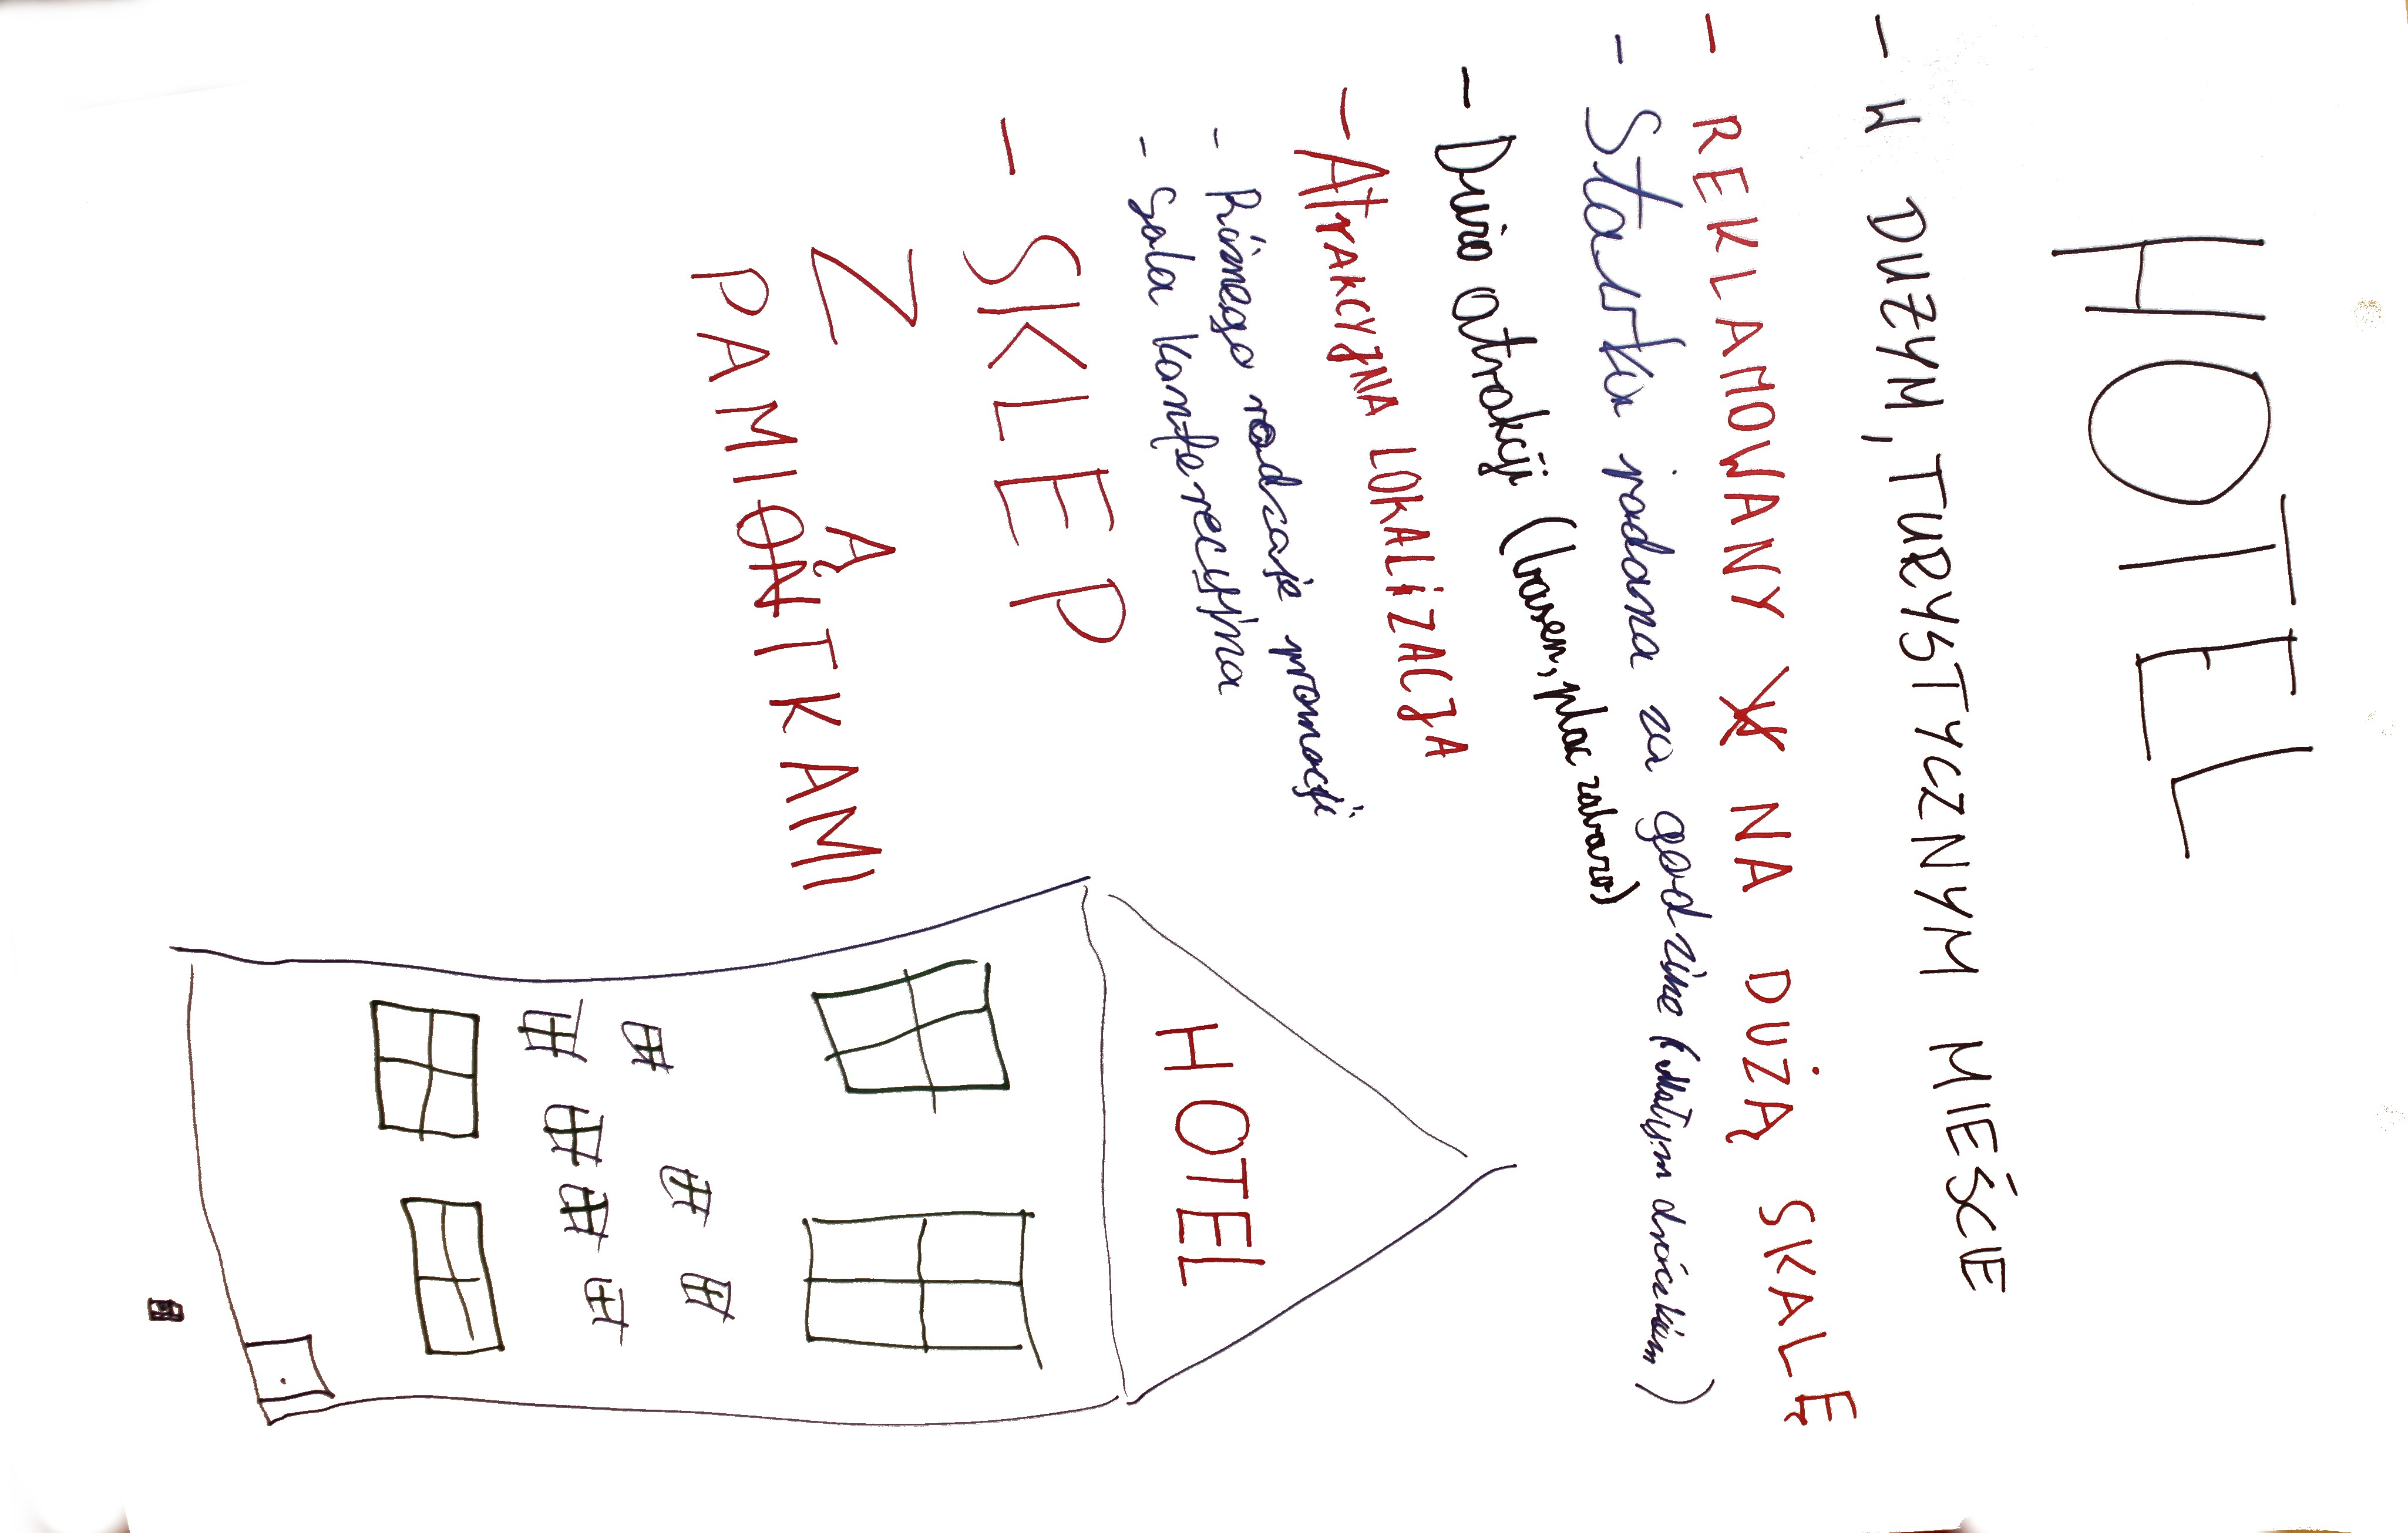 HOTEL
- W DUZYM, TURYSTYCZNYM MIEŚCIE
- REKLAMOWANY NA DUŻĄ SKALĘ
- Stawka podana za godzine (
- Dużo atrakcji (basen, plac zabaw)
- ATRAKCYJNA LOKALIZACJA
- Różnego rodzaje promocji
- sala konferecyjna
- SKLEP
Z
PAMIĄTKAMI
HOTEL